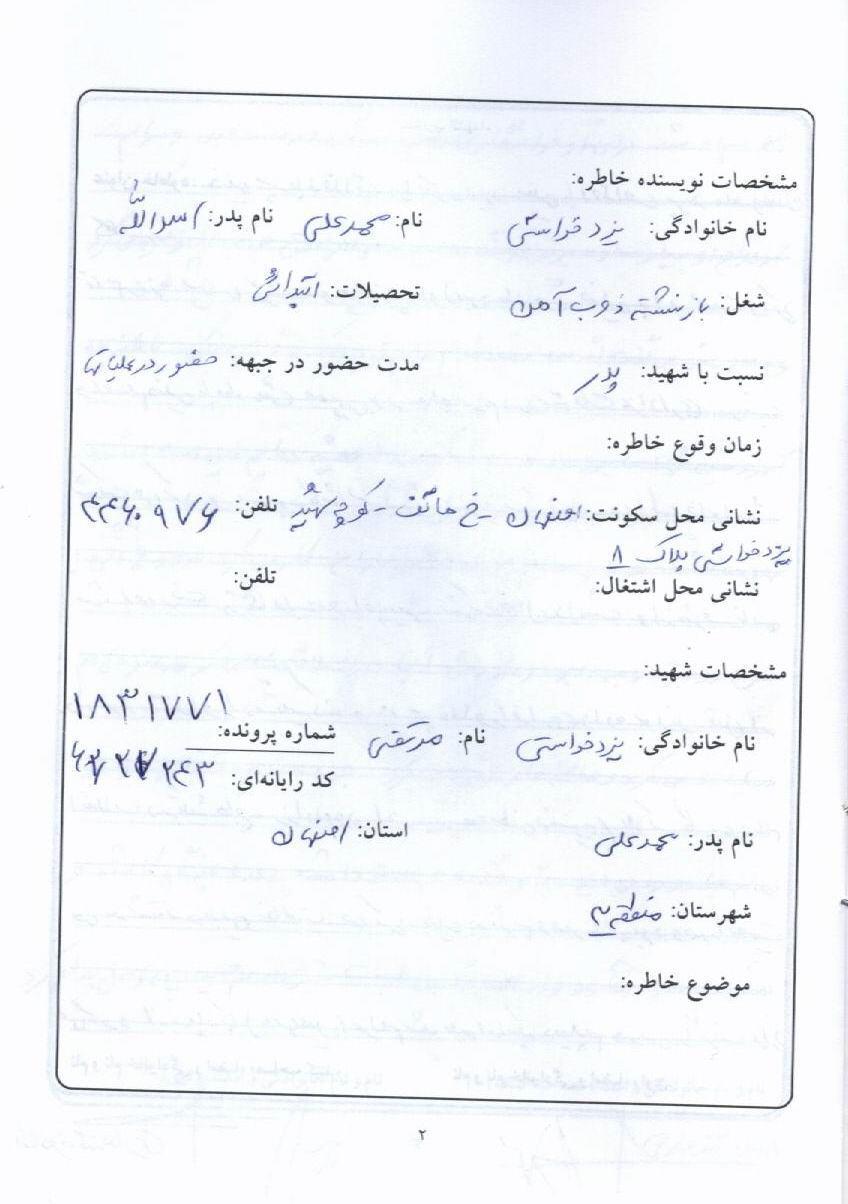 مشخصات نویسنده خاطره:
نام خانوادگی: یزدخواستی نام: محمدعلی نام پدر: اسدالله
شغل: بازنشسته ذوب آهن تحصیلات: ابتدائی
نسبت با شهید: پدر مدت حضور در جبهه: حضور در عملیاتها
زمان وقوع خاطره:
نشانی محل سکونت: اصفهان - خ هاتف - کوچه شهید تلفن: ۴۴۶۰۹۷۶
یزدخواستی پلاک ۸
نشانی محل اشتغال: تلفن:
مشخصات شهید:
۱۸۳۱۷۷۱
نام خانوادگی: یزدخواستی نام: مرتضی شماره پرونده:
کد رایانه‌ای:
نام پدر: محمدعلی استان: اصفهان
شهرستان: منطقه ۳
موضوع خاطره:
۲